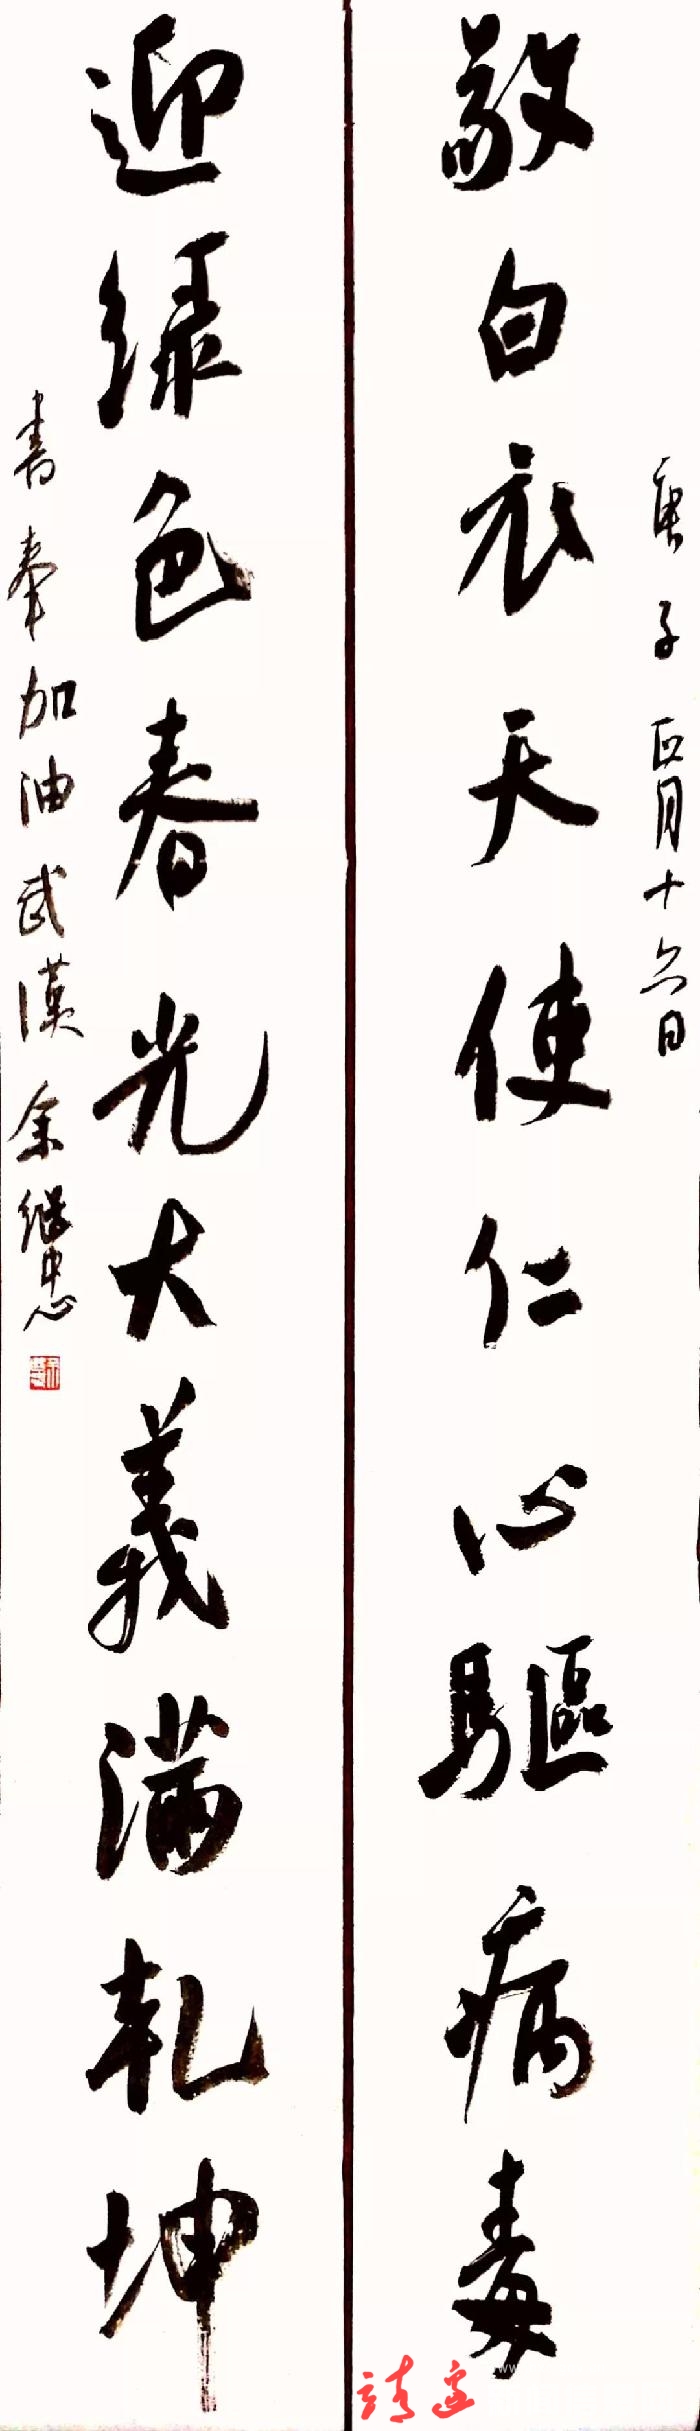 庚子正月十六日
敬白衣天使仁心驅病毒
迎绿色春光大義满乾坤
書奉加油武漢余继忠